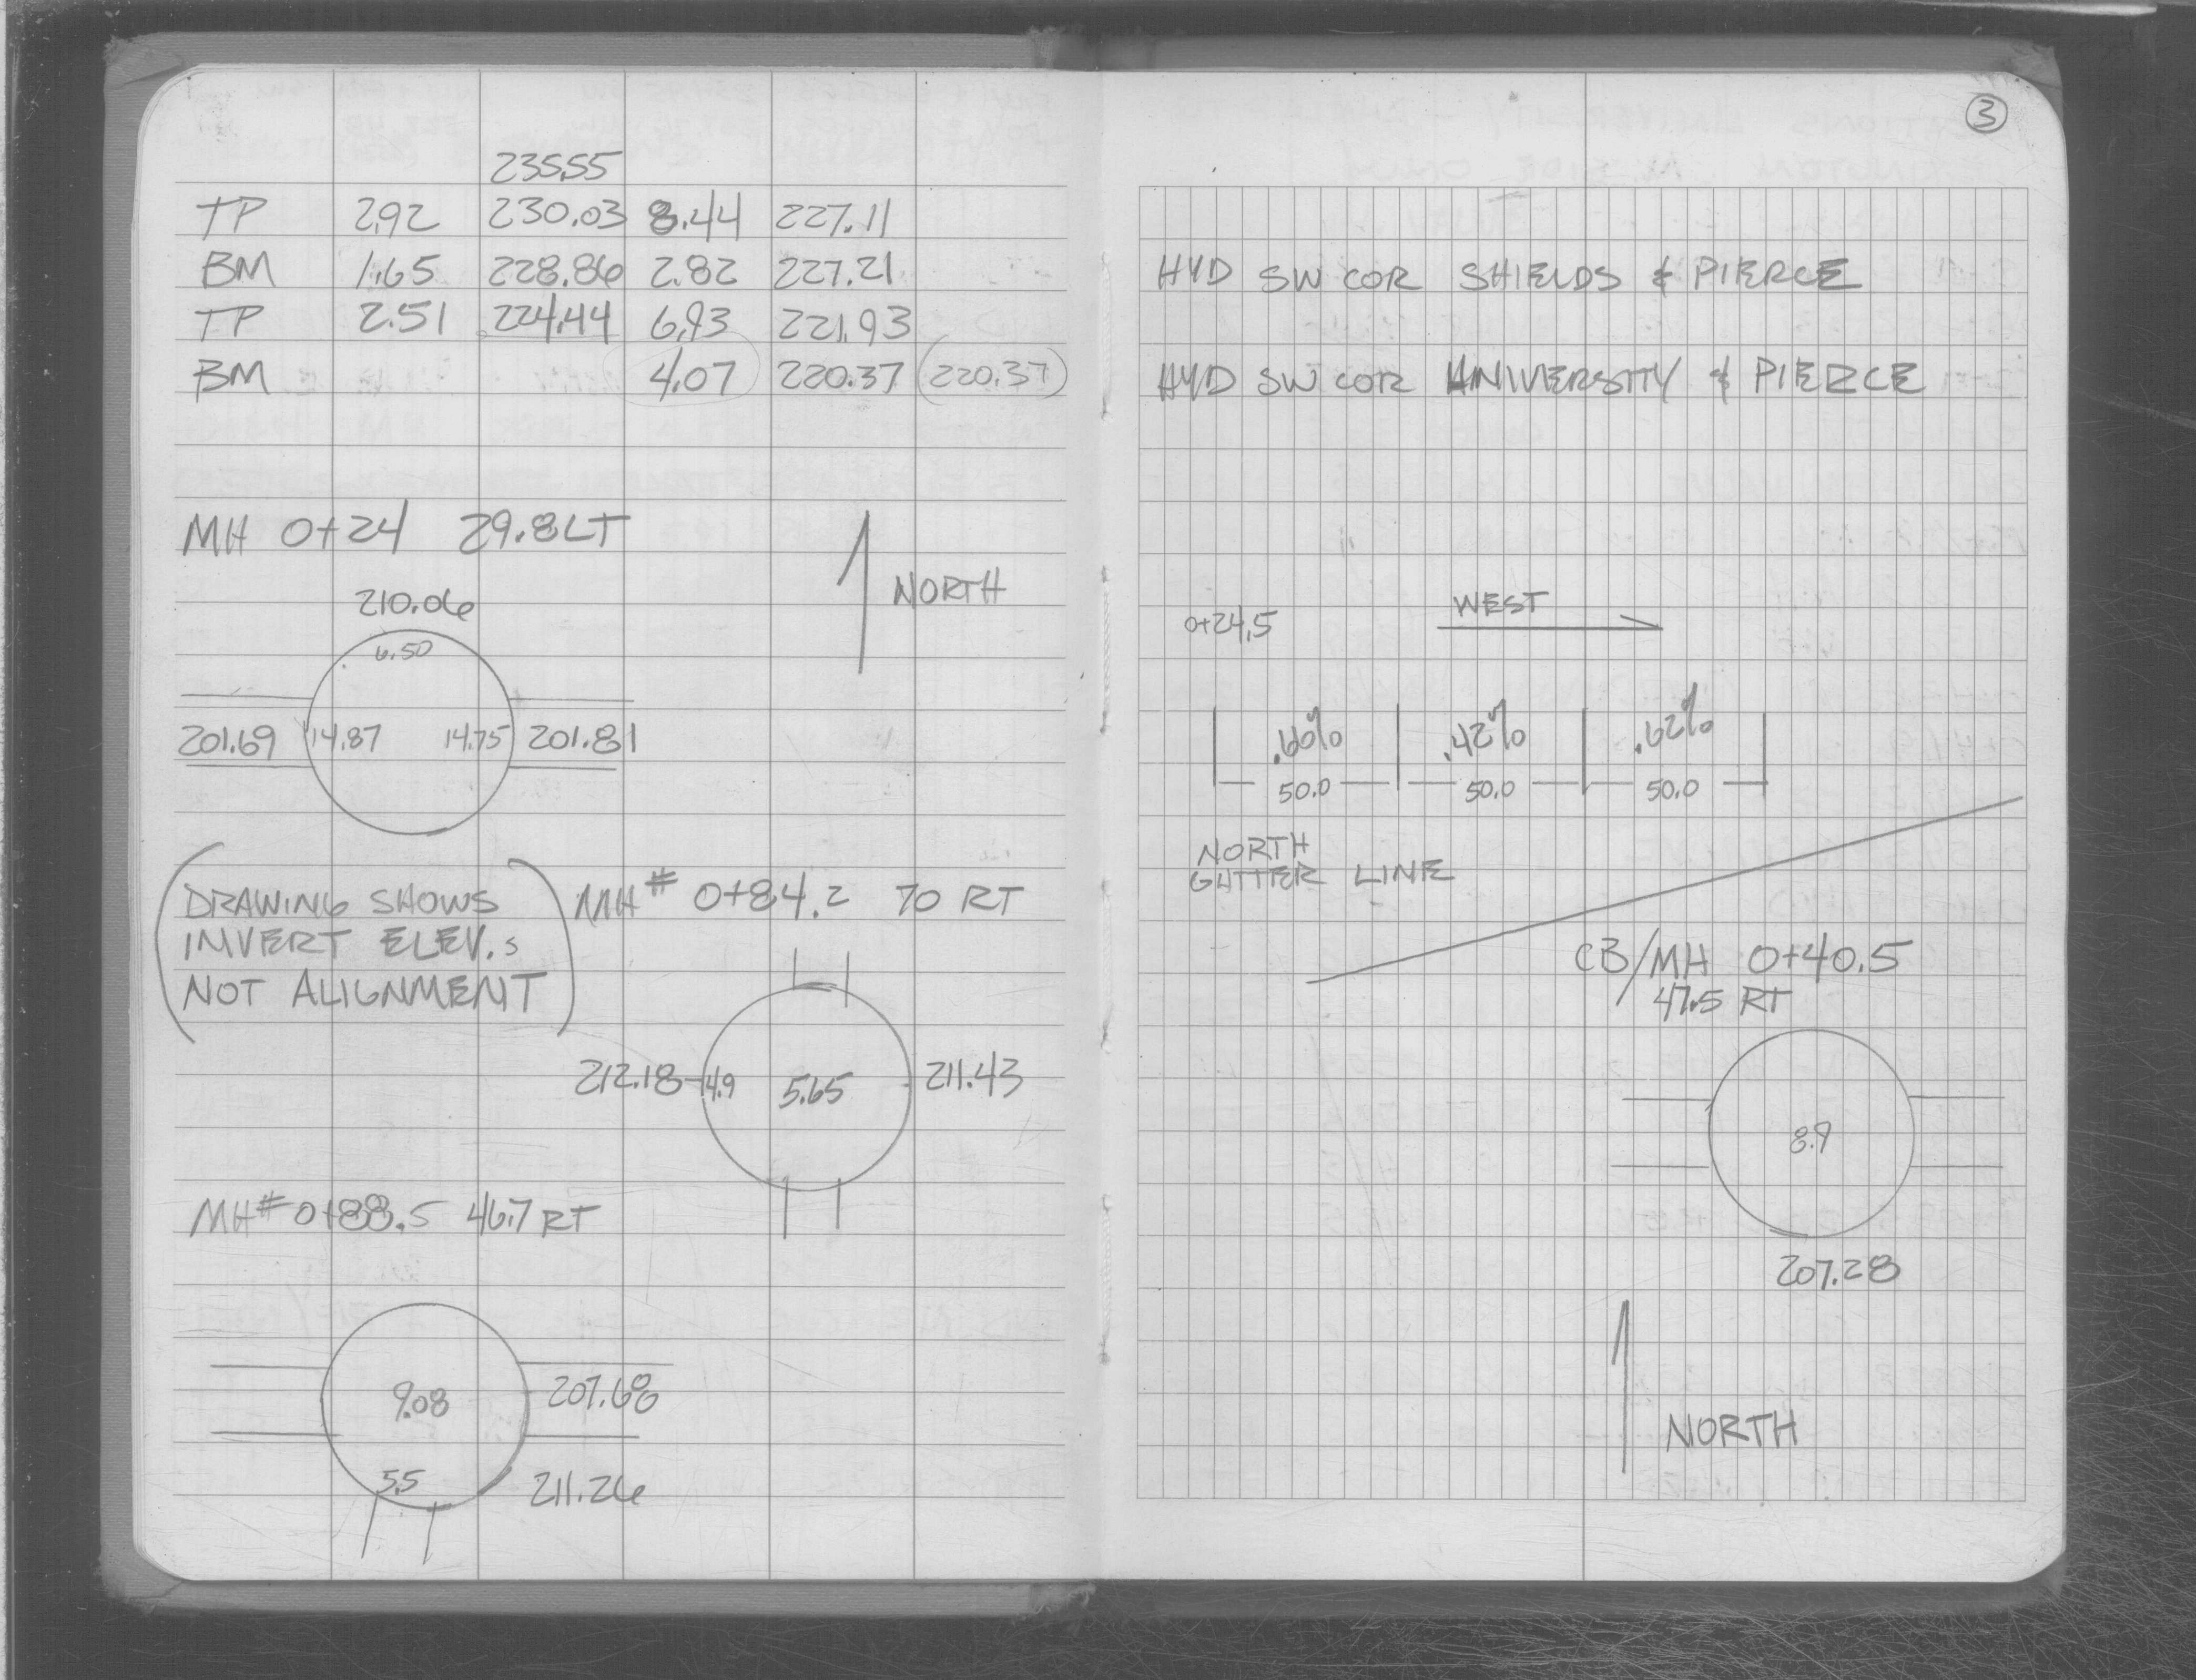 235.55
TP 2.92 230.03 8.44 227.11
BM 1.65 228.86 2.82 227.21
TP 2.51 224.44 6.93 221.93
BM 4.07 220.37 (220.37)
MH 0+24 29.8 LT
NORTH
210.06
6.50
201.69 14.87 14.75 201.81
(DRAWING SHOWS
INVERT ELEV.S
NOT ALIGNMENT)
MH# 0+84.2 70 RT
212.18 4.9 5.65 211.43
MH# 0+88.5 46.7 RT
9.08 207.68
5.5 211.26
3
HYD SW COR SHIELDS & PIERCE
HYD SW COR UNIVERSITY & PIERCE
0+24.5 WEST
.60% .42% .62%
50.0 50.0 50.0
NORTH
GUTTER LINE
CB/MH 0+40.5
47.5 RT
8.9
207.28
NORTH